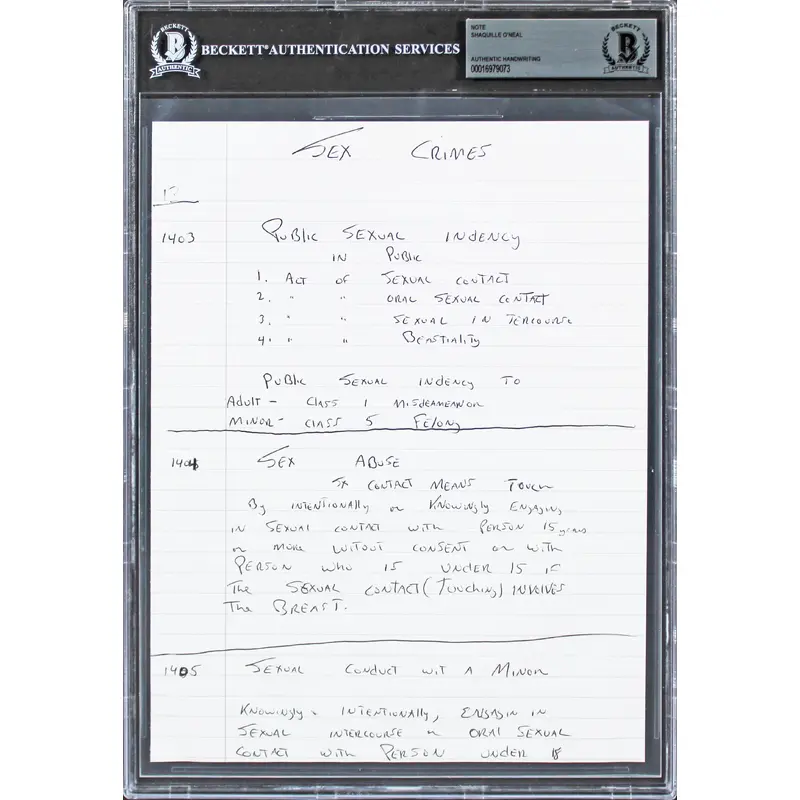 BECKETT
B
AUTHENTIC
BECKETT® AUTHENTICATION SERVICES
NOTE
SHAQUILLE O'NEAL
AUTHENTIC HANDWRITING
00016979073
BECKETT
B
AUTHENTIC
SEX CRIMES
1403 PUBLIC SEXUAL INDENCY
IN PUBLIC
1. ACT OF SEXUAL CONTACT
2. " " ORAL SEXUAL CONTACT
3. " " SEXUAL INTERCOURSE
4. " " BEASTIALITY
PUBLIC SEXUAL INDENCY TO
ADULT - CLASS 1 MISDEAMEANOR
MINOR - CLASS 5 FELONY
1404 SEX ABUSE
SX CONTACT MEANS TOUCH
By INTENTIONALLY or KNOWINGLY ENGAGING
IN SEXUAL CONTACT WITH PERSON 15 years
or MORE WITOUT CONSENT or WITH
PERSON WHO IS UNDER 15 IF
THE SEXUAL CONTACT (TOUCHING) INVOLVES
THE BREAST.
1405 SEXUAL CONDUCT WIT A MINOR
KNOWINGLY INTENTIONALLY, ENGAGIN IN
SEXUAL INTERCOURSE or ORAL SEXUAL
CONTACT WITH PERSON UNDER 18